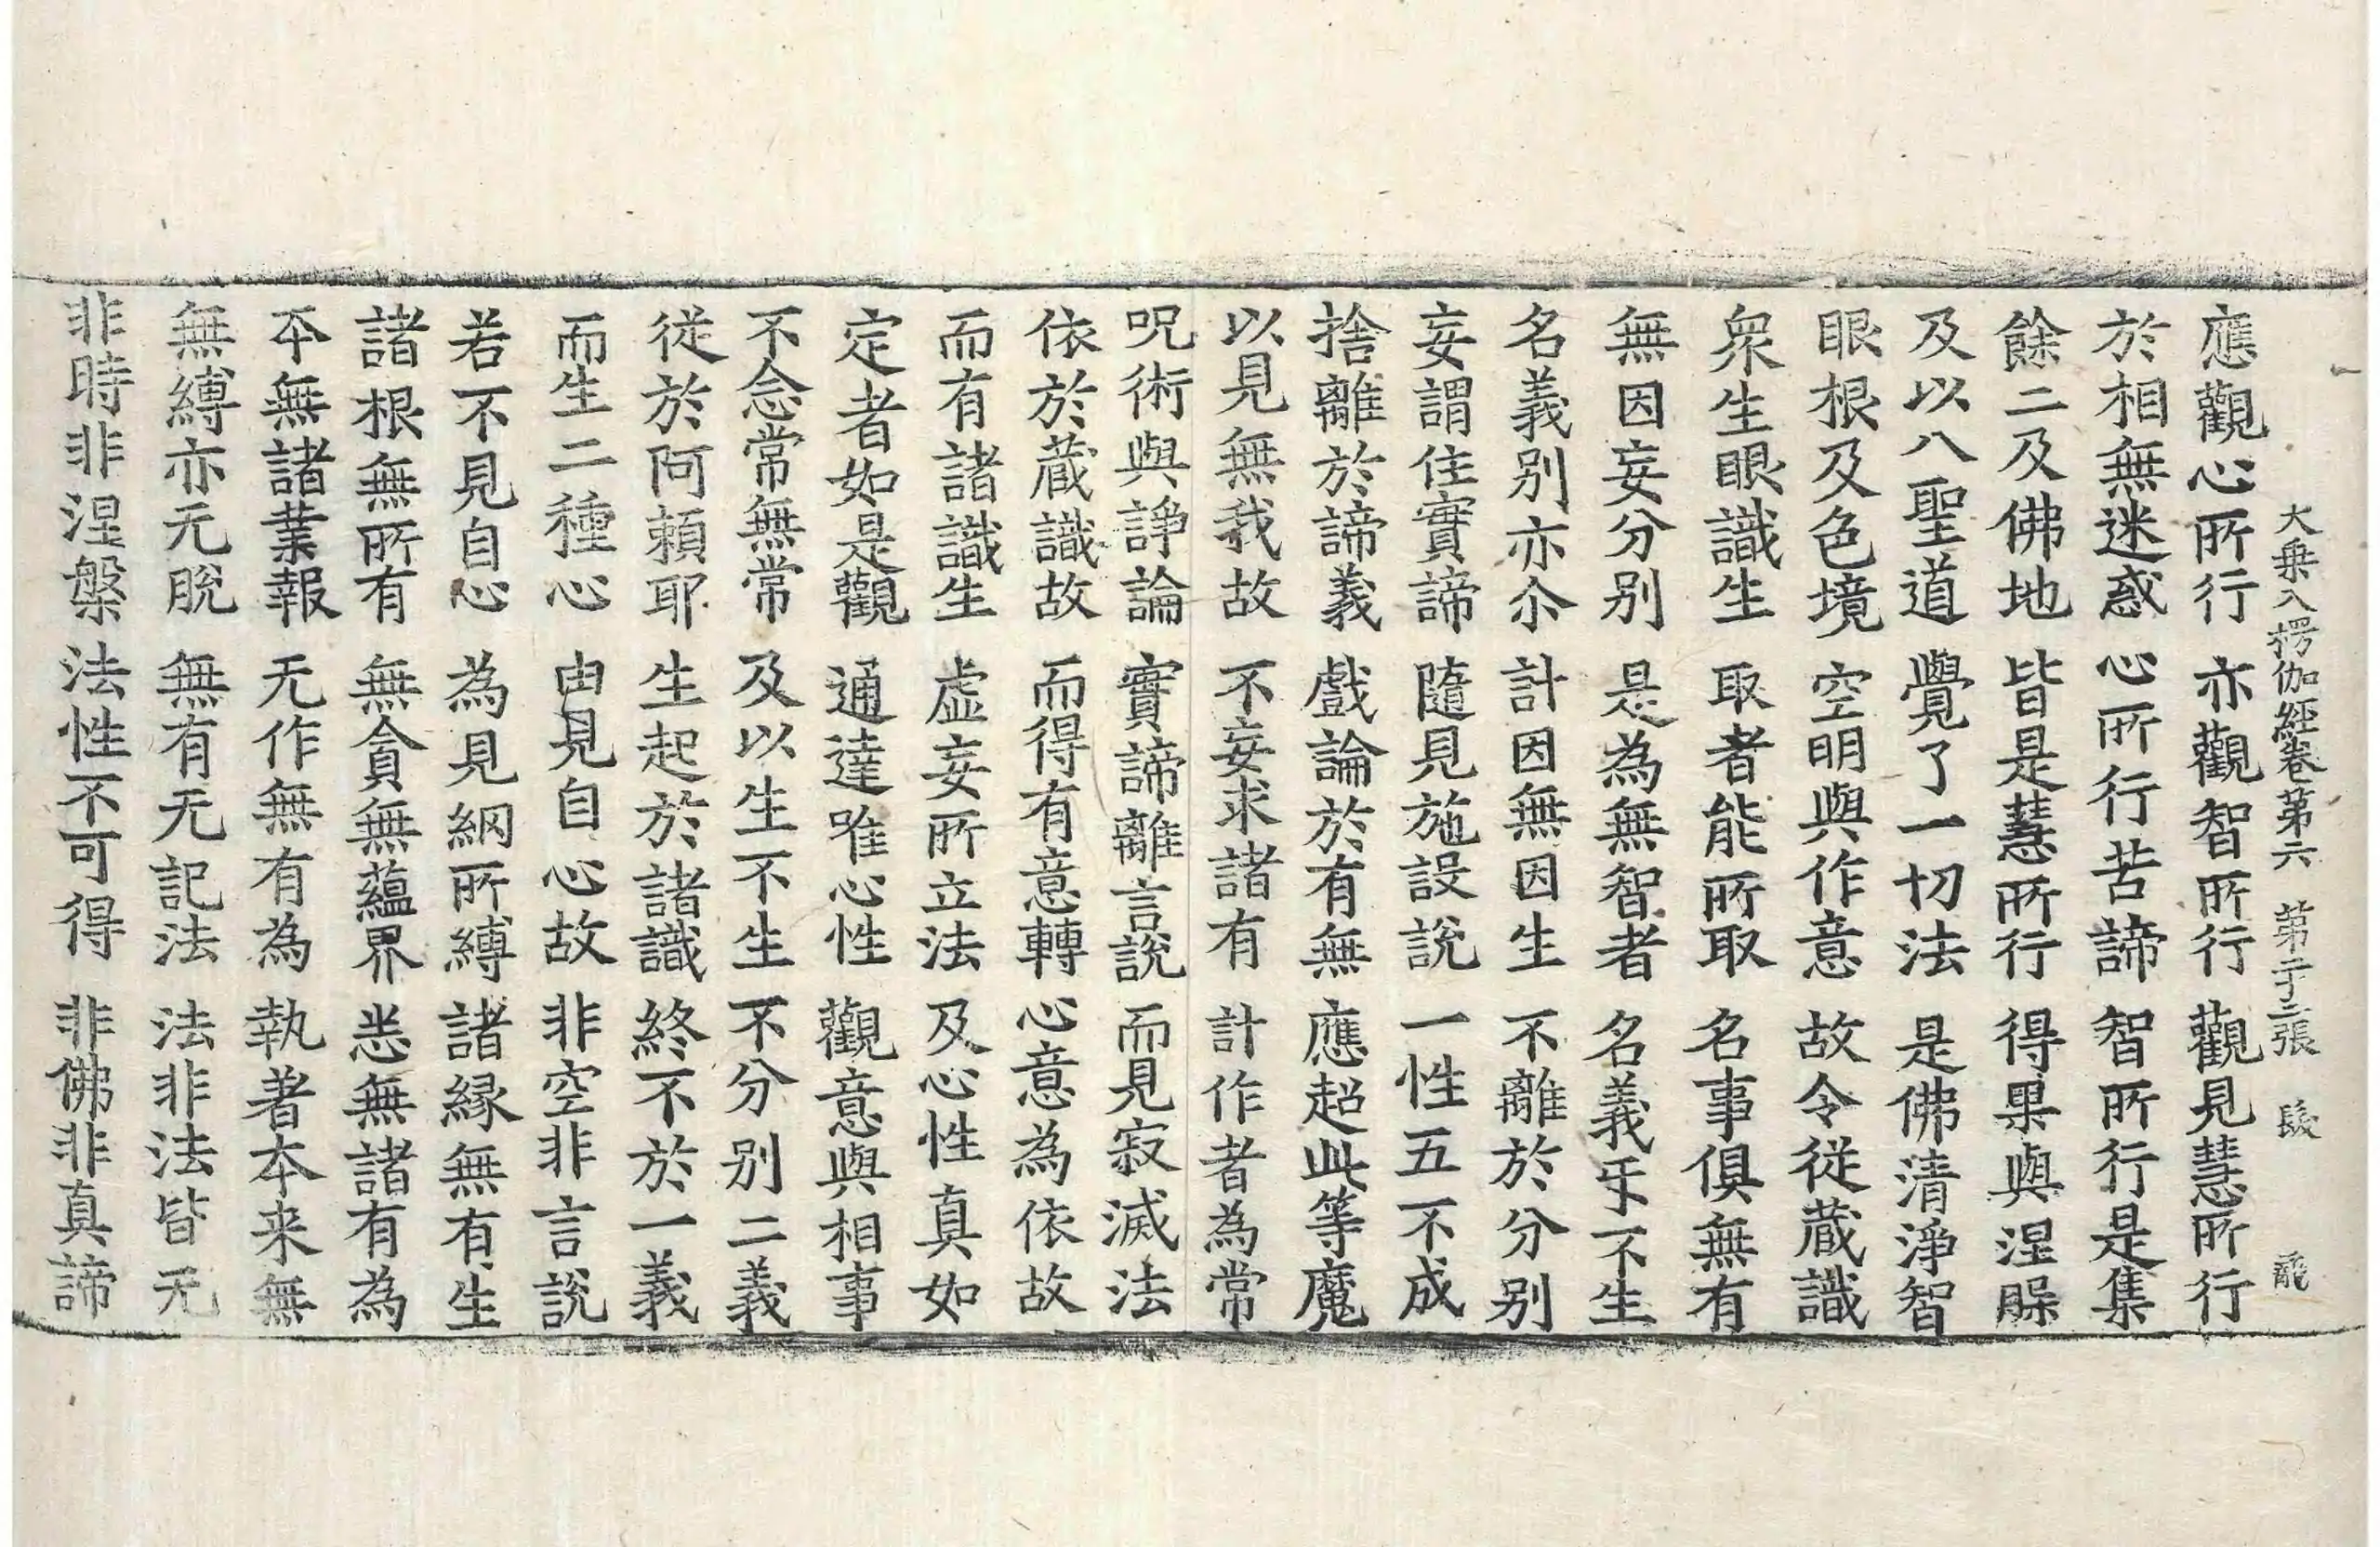 大乗入楞伽經卷第六 第二十三張 
應觀心所行 亦觀智所行 觀見慧所行
於相無迷惑 心所行苦諦 智所行是集
餘二及佛地 皆是慧所行 得果與涅槃
及以八聖道 覺了一切法 是佛清淨智
眼根及色境 空明與作意 故令従蔵識
衆生眼識生 取者能所取 名事俱無有
無因妄分别 是為無智者 名義㸦不生
名義别亦尒 計因無因生 不離於分别
妄謂住實諦 隨見施設說 一性五不成
捨離於諦義 戲論於有無 應超此等魔
以見無我故 不妄求諸有 計作者為常
呪術與諍論 實諦離言說 而見寂滅法
依於蔵識故 而得有意轉 心意為依故
而有諸識生 虚妄所立法 及心性真如
定者如是觀 通達唯心性 觀意與相事
不念常無常 及以生不生 不分别二義
従於阿頼耶 生起於諸識 終不於一義
而生二種心 由見自心故 非空非言說
若不見自心 為見網所縛 諸縁無有生
諸根無所有 無貪無蘊界 悉無諸有為
本無諸業報 无作無有為 執著本来無
無縛亦无脱 無有无記法 法非法皆无
非時非涅槃 法性不可得 非佛非真諦